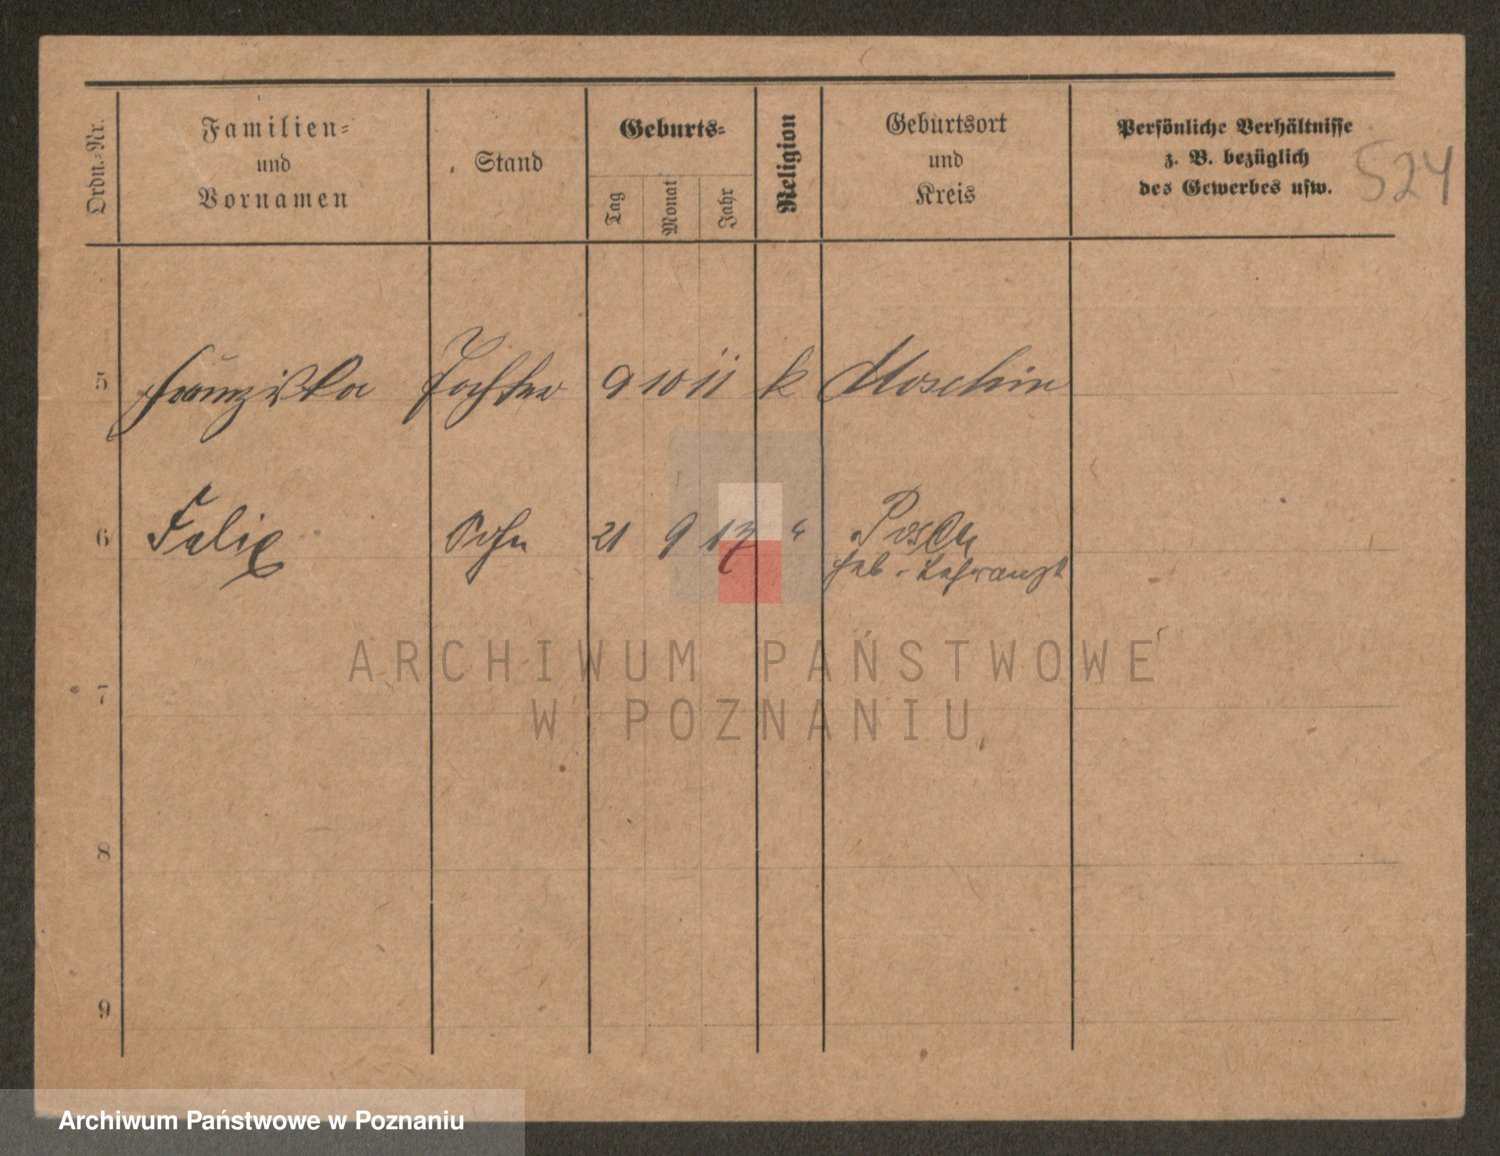 Ordn.-Nr.
Familien-
und
Vornamen
Stand
Geburts-
Tag
Monat
Jahr
Religion
Geburtsort
und
Kreis
Persönliche Verhältnisse
z. B. bezüglich
des Gewerbes usw.
524
5 Franziska Tochter 9 10 11 k Moschin
6 Felix Sohn 21 9 17 " Posen
7
8
9
ARCHIWUM PAŃSTWOWE
W POZNANIU
Archiwum Państwowe w Poznaniu